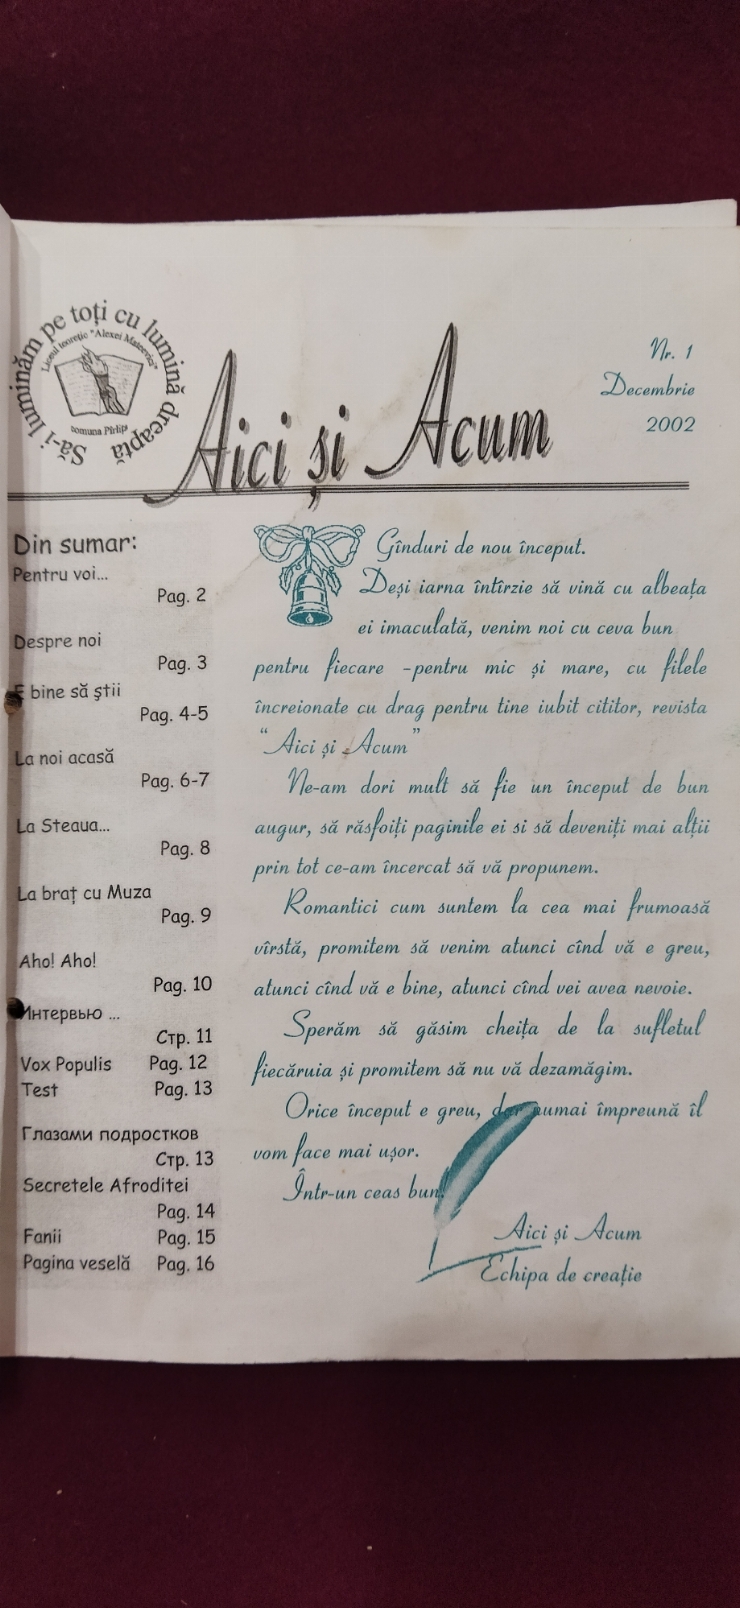 Să-i luminăm pe toți cu lumină dreaptă
Liceul teoretic "Alexei Mateevici"
comuna Pîrlița
Aici și Acum
Nr. 1
Decembrie
2002
Din sumar:
Pentru voi...
Pag. 2
Despre noi
Pag. 3
E bine să ştii
Pag. 4-5
La noi acasă
Pag. 6-7
La Steaua...
Pag. 8
La braț cu Muza
Pag. 9
Aho! Aho!
Pag. 10
Интервью ...
Стр. 11
Vox Populis Pag. 12
Test Pag. 13
Глазами подростков
Стр. 13
Secretele Afroditei
Pag. 14
Fanii Pag. 15
Pagina veselă Pag. 16
Gînduri de nou început.
Deși iarna întîrzie să vină cu albeața
ei imaculată, venim noi cu ceva bun
pentru fiecare -pentru mic și mare, cu filele
încreionate cu drag pentru tine iubit cititor, revista
“Aici și Acum”
Ne-am dori mult să fie un început de bun
augur, să răsfoiți paginile ei si să deveniți mai alții
prin tot ce-am încercat să vă propunem.
Romantici cum suntem la cea mai frumoasă
vîrstă, promitem să venim atunci cînd vă e greu,
atunci cînd vă e bine, atunci cînd vei avea nevoie.
Sperăm să găsim cheița de la sufletul
fiecăruia și promitem să nu vă dezamăgim.
Orice început e greu, dar numai împreună îl
vom face mai ușor.
Într-un ceas bun!
Aici și Acum
Echipa de creație